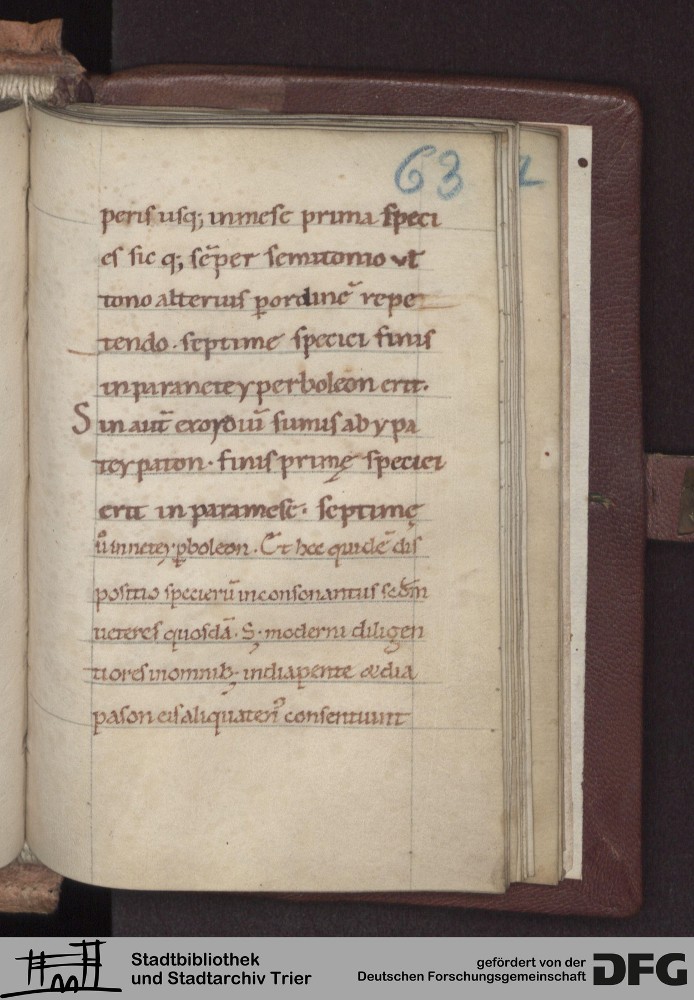 63
perisusq; inmese prima speci
es sic q; sēper semitonio vł
tono alterius ꝑordinē repe
tendo. septime speciei finis
inparaneteyperboleon erit.
Sin aut̄ exordiū sumisabypa
teypaton. finis primę speciei
erit in paramese. septimę
ů innetey ꝑboleon. Et hec quidē dis
positio specierū inconsonantiis scdm̄
ueteres quosdā. S; moderni diligen
tiores inomnib; indiapente &dia
pason eisaliquaten᾿ consentiunt
Stadtbibliothek
und Stadtarchiv Trier
gefördert von der
Deutschen Forschungsgemeinschaft
DFG